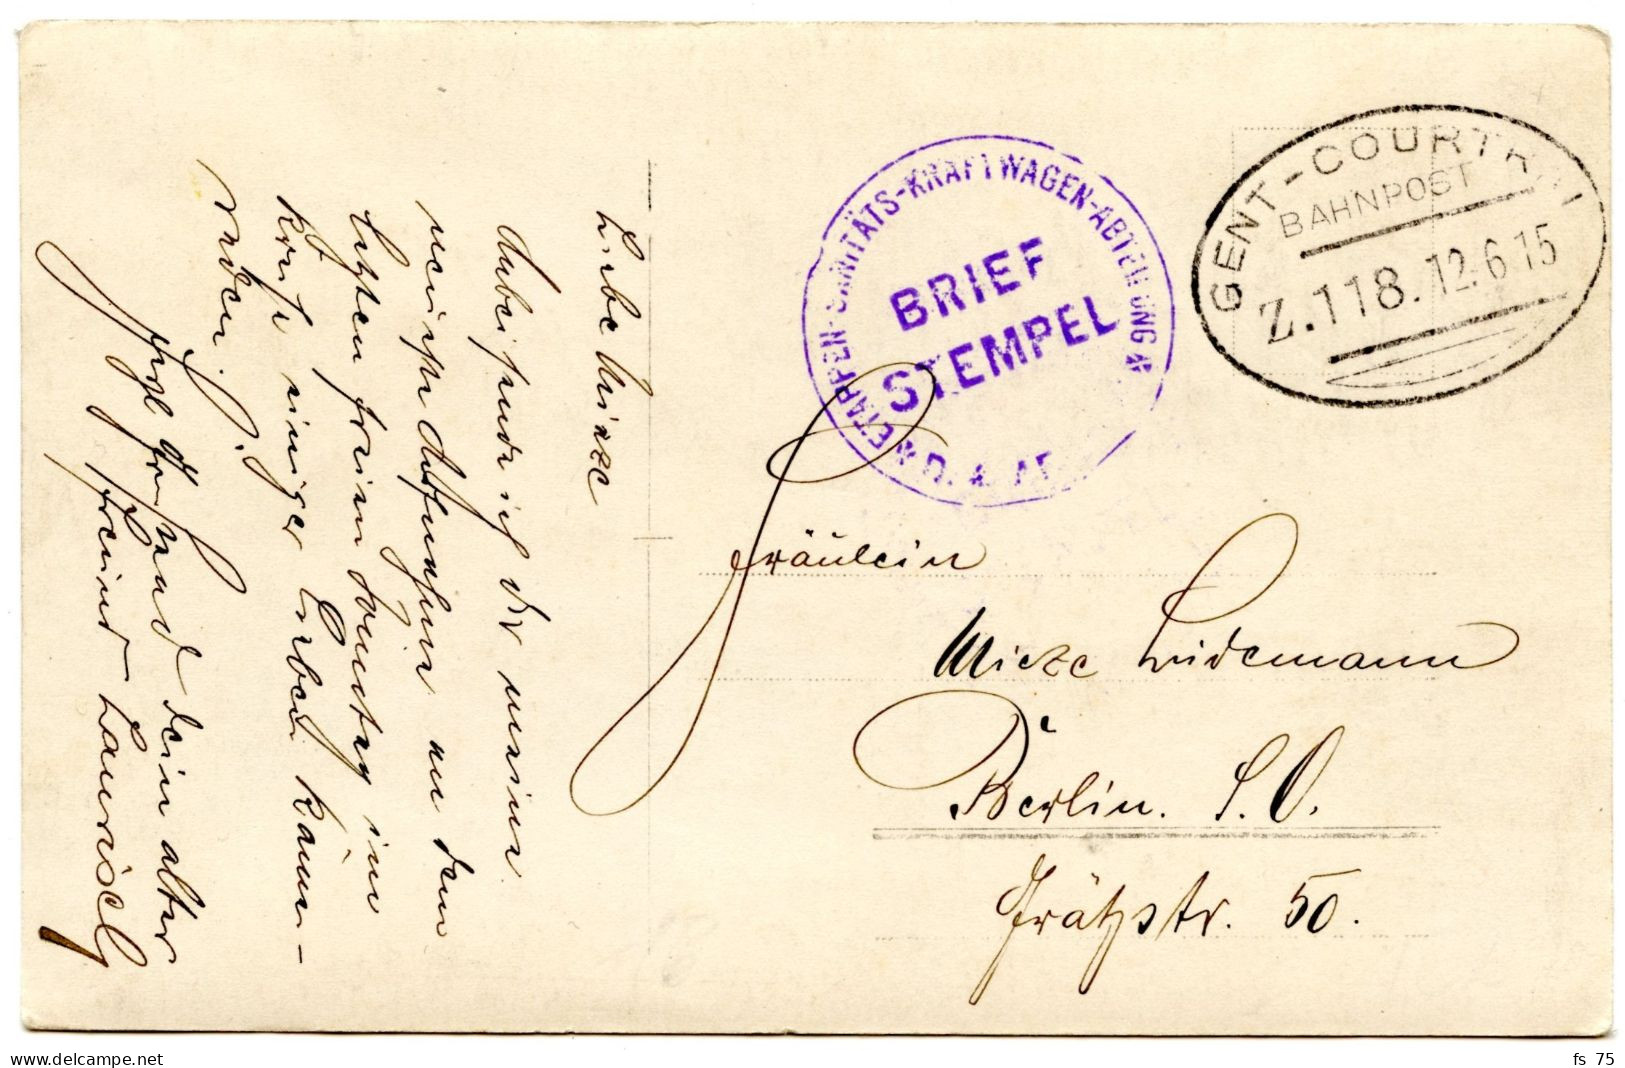 Liebe Mieze
Anbei sende ich dir meine
neuste Aufnahme an dem
letzten freien Sonntag im
Kreise einiger Lieben Kame-
raden.
Herzl. Gruß sendet dein alter
Freund
ETAPPEN-SANITÄTS-KRAFTWAGEN-ABTEILUNG
BRIEF
STEMPEL
GENT-COURTRAI
BAHNPOST
Z.118. 12.6.15
Fräulein
Mieze Lindemann
Berlin. S.O.
Grätzstr. 50.
delcampe.net
fs_75